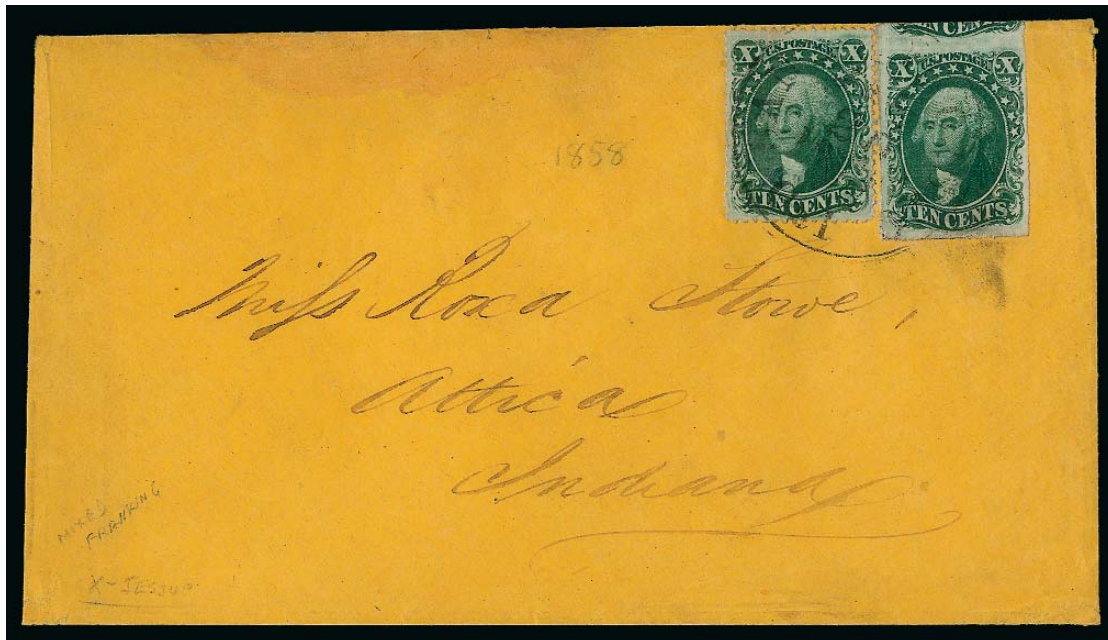 TEN CENTS
X U.S. POSTAGE X
TEN CENTS
X U.S. POSTAGE X
TEN CENTS
1858
Miss Roxa Stowe,
Attica
Indiana
MIXED
FRANKING
X-JESSUP